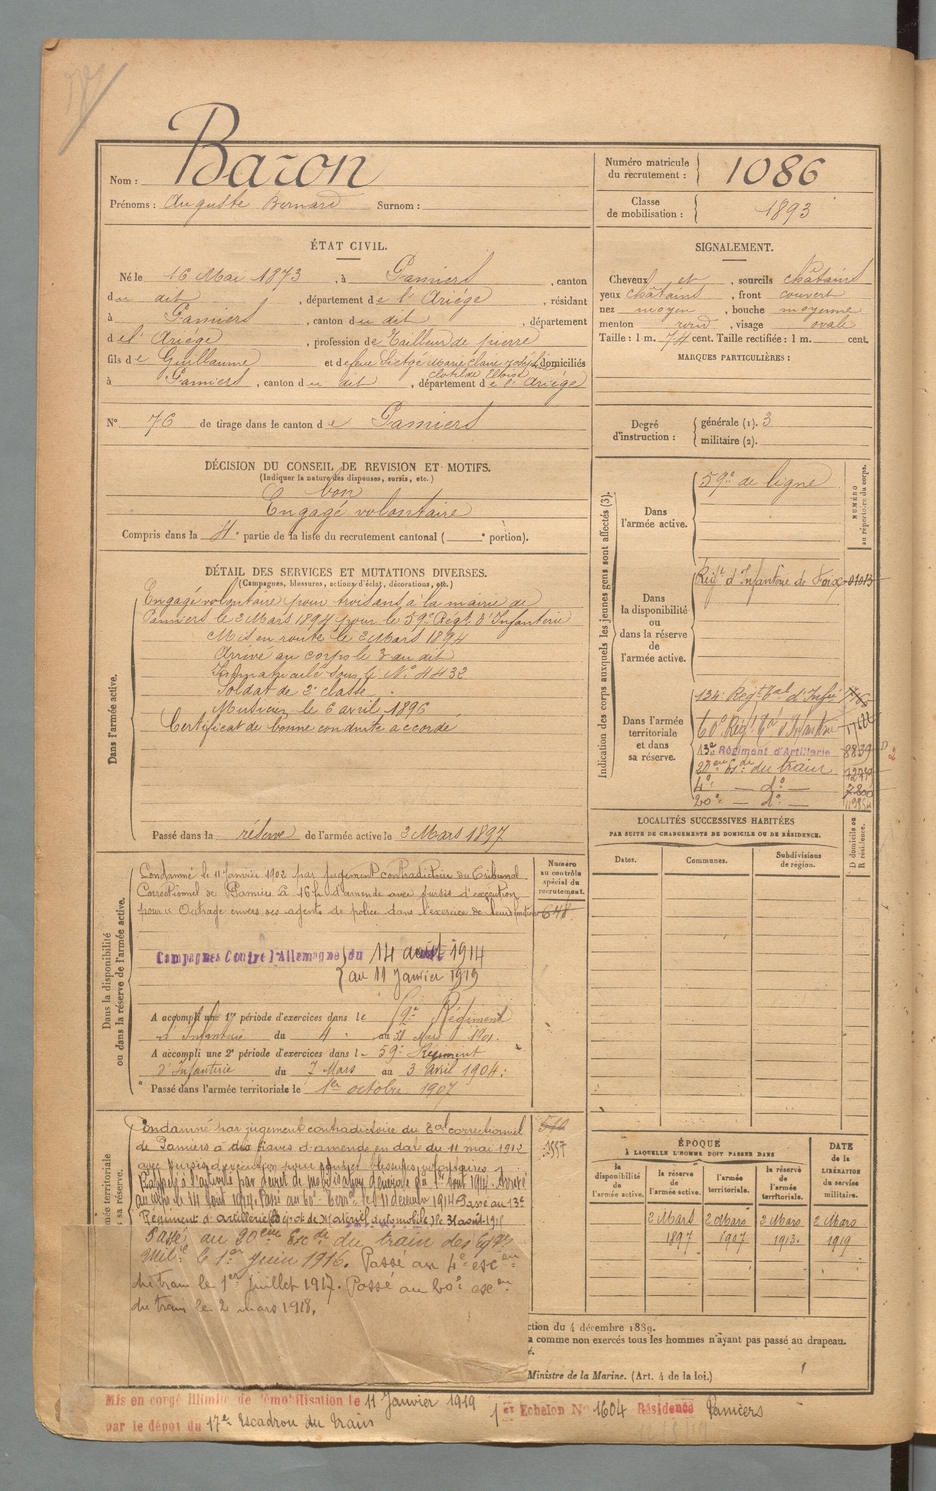 Baron
Nom :
Prénoms : Auguste Bernard Surnom :
Numéro matricule
du recrutement : 1086
Classe
de mobilisation : 1893
ÉTAT CIVIL.
Né le 16 Mai 1873, à Pamiers, canton
du dit, département de l'Ariége, résidant
à Pamiers, canton du dit, département
de l'Ariége, profession de Tailleur de pierre
fils de Guillaume et de feue Marie Claire domiciliés
Clotilde Eloïse
à Pamiers, canton du dit, département de l'Ariége
N° 76 de tirage dans le canton de Pamiers
SIGNALEMENT.
Cheveux et, sourcils châtains
yeux châtains, front couvert
nez moyen, bouche moyenne
menton rond, visage ovale
Taille : 1 m. 74 cent. Taille rectifiée : 1 m. cent.
MARQUES PARTICULIÈRES :
Degré
d'instruction : générale (1). 3
militaire (2).
DÉCISION DU CONSEIL DE REVISION ET MOTIFS.
(Indiquer la nature des dispenses, sursis, etc.)
bon
Engagé volontaire
Compris dans la 4e partie de la liste du recrutement cantonal ( e portion).
DÉTAIL DES SERVICES ET MUTATIONS DIVERSES.
(Campagnes, blessures, actions d'éclat, décorations, etc.)
Dans l'armée active.
Engagé volontaire pour trois ans à la mairie de
Pamiers le 2 Mars 1894 pour le 59e Régt d'Infanterie
Mis en route le 2 Mars 1894
Arrivé au corps le 3 au dit
Immatriculé sous le N° 4432
Soldat de 2e classe.
Musicien le 6 avril 1896
Certificat de bonne conduite accordé
Passé dans la réserve de l'armée active le 2 Mars 1897
Indication des corps auxquels les jeunes gens sont affectés (3).
NUMÉRO
au répertoire du corps.
Dans
l'armée active.
59e de ligne
Dans
la disponibilité
ou
dans la réserve
de
l'armée active.
Régt d'Infanterie de Foix
Dans l'armée
territoriale
et dans
sa réserve.
134e Regt tal d'Infie
60e Régt tal d'Infanterie
13e Régiment d'Artillerie 8839
20eme Escon du train
4e — do —
20e — do —
LOCALITÉS SUCCESSIVES HABITÉES
PAR SUITE DE CHANGEMENTS DE DOMICILE OU DE RÉSIDENCE.
D domicile ou
R résidence.
Dates. Communes. Subdivisions
de région.
Numéro
au contrôle
spécial du
recrutement.
Dans la disponibilité
ou dans la réserve de l'armée active.
Condamné le 11 Janvier 1902 par jugement contradictoire du Tribunal
Correctionnel de Pamiers à 16 f. d'amende avec sursis d'exécution
pour Outrage envers des agents de police dans l'exercice de leurs fonctions 648
Campagnes Contre l'Allemagne du 14 août 1914
au 11 Janvier 1919
A accompli une 1re période d'exercices dans le 59e Régiment
d'Infanterie du 4 au 31 Mars 1901.
A accompli une 2e période d'exercices dans le 59e Régiment
d'Infanterie du 7 Mars au 3 avril 1904.
Passé dans l'armée territoriale le 1er octobre 1907
Condamné par jugement contradictoire du Bal correctionnel
de Pamiers à dix francs d'amende en date du 11 mai 1912
avec sursis d'exécution pour
Rappelé à l'activité par décret de mobilisation générale du 1er août 1914. Arrivé
au corps le 14 août 1914. Passé au 60e le 11 décembre 1914 Passé au 13e
Régiment d'artillerie (Dépôt de Matériel automobile) le 31 août 1915
Passé au 20eme Escon du train des Eqges
Milres le 1er Juin 1916. Passé au 4e escon
du train le 1er Juillet 1917. Passé au 20e escon
du train le 2 mars 1918.
1557
ÉPOQUE
À LAQUELLE L'HOMME DOIT PASSER DANS
DATE
de la
LIBÉRATION
du service
militaire.
la
disponibilité
de
l'armée active.
la réserve
de
l'armée active.
l'armée
territoriale.
la réserve
de
l'armée
territoriale.
2 Mars 1897
2 Mars 1907
2 Mars 1913.
2 Mars 1919
ction du 4 décembre 1889.
a comme non exercés tous les hommes n'ayant pas passé au drapeau.
Ministre de la Marine. (Art. 4 de la loi.)
Mis en congé illimité de démobilisation le 11 Janvier 1919 1er Echelon N° 1604 Résidence Pamiers
par le dépôt du 17e Escadron du train